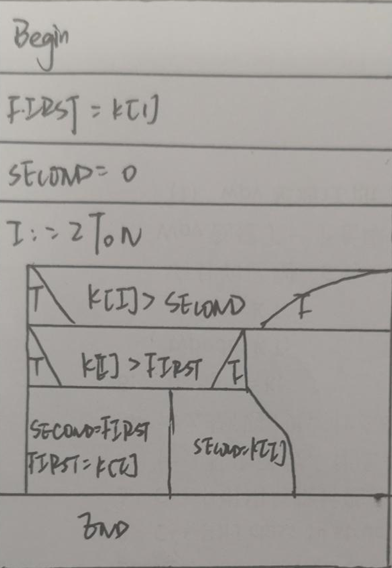 Begin
FIRST = K[1]
SECOND = 0
I := 2 TO N
T K[I] > SECOND F
T K[I] > FIRST F
SECOND=FIRST
FIRST=K[I]
SECOND=K[I]
END